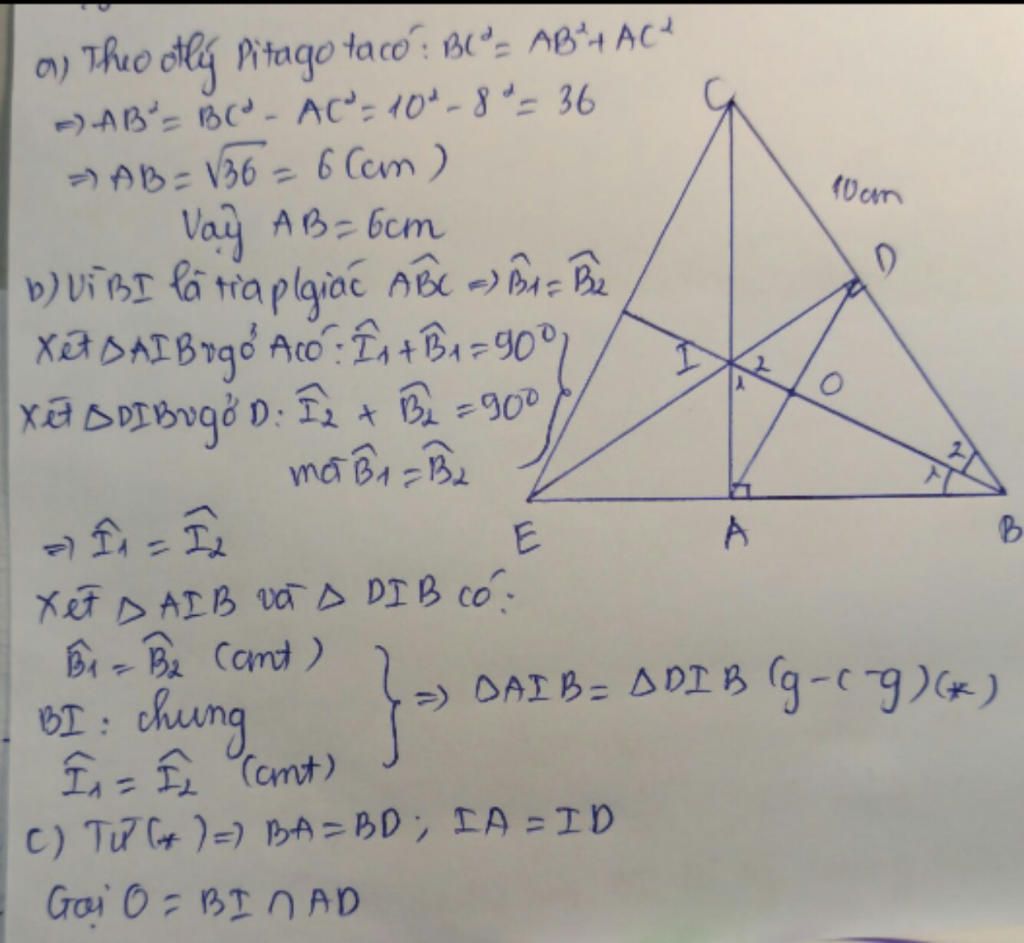 a) Theo đlý Pitago ta có: BC² = AB² + AC²
=> AB² = BC² - AC² = 10² - 8² = 36
=> AB = √36 = 6 (cm)
Vậy AB = 6cm
b) Vì BI là tia p/giác ABC => B̂1 = B̂2
Xét ΔAIB vg ở A có: Î1 + B̂1 = 90°
Xét ΔDIB vg ở D: Î2 + B̂2 = 90°
mà B̂1 = B̂2
=> Î1 = Î2
Xét Δ AIB và Δ DIB có:
B̂1 = B̂2 (cmt)
BI: chung
Î1 = Î2 (cmt)
=> ΔAIB = ΔDIB (g-c-g) (*)
c) Từ (*) => BA = BD; IA = ID
Gọi O = BI ∩ AD
C
10cm
D
I
2
1
O
2
1
E
A
B